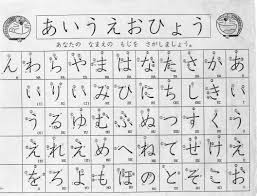 あいうえおひょう
あなたの なまえの もじを さがしましょう。
ん わ ら や ま は な た さ か あ
い り い み ひ に ち し き い
う る ゆ む ふ ぬ つ す く う
え れ え め へ ね て せ け え
を ろ よ も ほ の と そ こ お